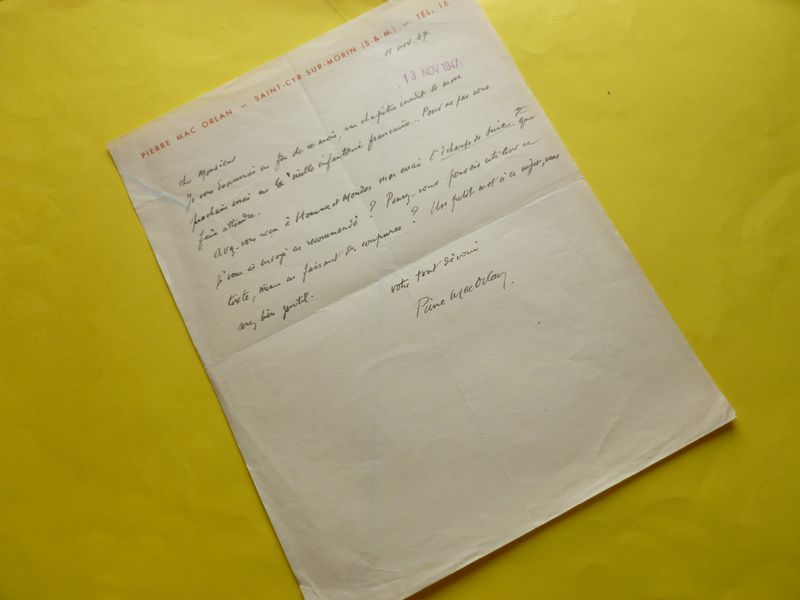 PIERRE MAC ORLAN — SAINT-CYR-SUR-MORIN (S. & M.) — TÉL. 16
11 nov. 47
13 NOV 1947
cher Monsieur
Je vous donnerai en fin de ce mois, un chapitre inédit de mon
prochain essai sur la vieille infanterie française... Pour ne pas vous
faire attendre.
Avez-vous reçu à Hommes et Mondes mon essai que
j'vous ai envoyé en recommandé ? Pensez-vous pouvoir utiliser ce
texte, même en faisant des coupures ? Un petit mot à ce sujet, vous
serez bien gentil.
votre tout dévoué
Pierre Mac Orlan.